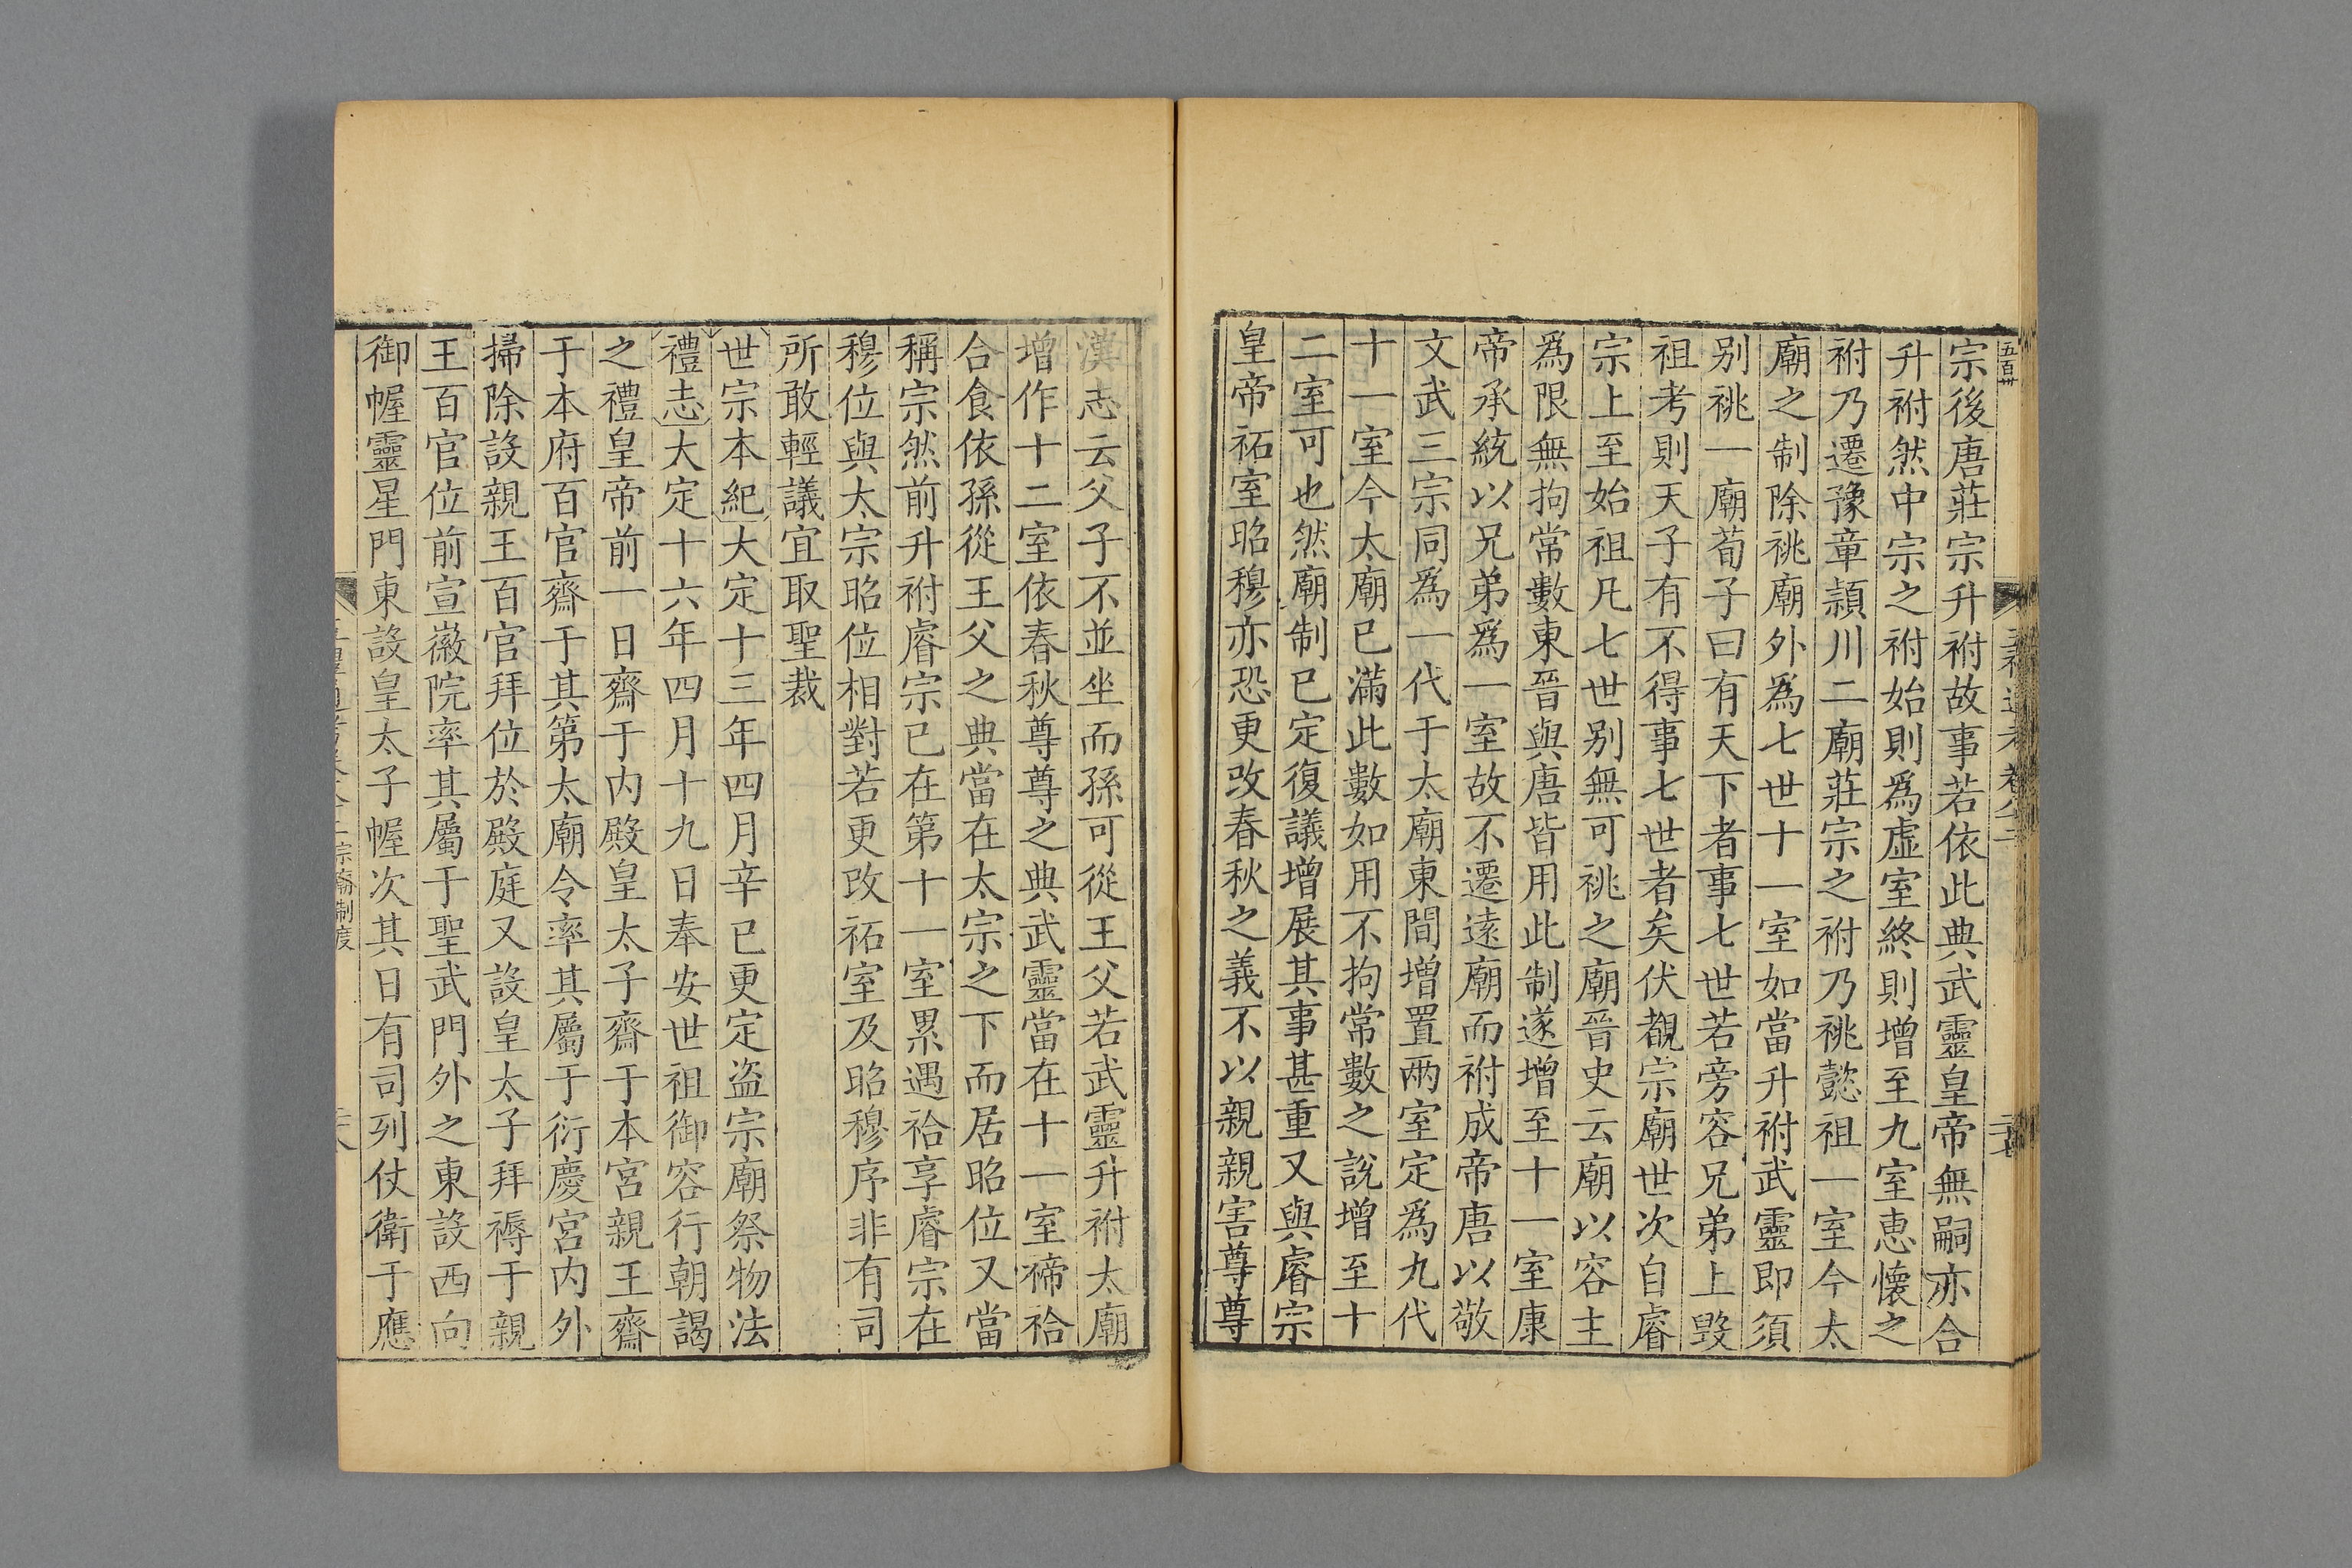 五百卅
宗後唐莊宗升祔故事若依此典武靈皇帝無嗣亦合
升祔然中宗之祔始則爲虛室終則增至九室惠懷之
祔乃遷豫章潁川二廟莊宗之祔乃祧懿祖一室今太
廟之制除祧廟外爲七世十一室如當升祔武靈即須
别祧一廟荀子曰有天下者事七世若旁容兄弟上毀
祖考則天子有不得事七世者矣伏覩宗廟世次自睿
宗上至始祖凡七世别無可祧之廟晉史云廟以容主
爲限無拘常數東晉與唐皆用此制遂增至十一室康
帝承統以兄弟爲一室故不遷遠廟而祔成帝唐以敬
文武三宗同爲一代于太廟東間增置兩室定爲九代
十一室今太廟已滿此數如用不拘常數之說增至十
二室可也然廟制已定復議增展其事甚重又與睿宗
皇帝祏室昭穆亦恐更改春秋之義不以親親害尊尊
漢志云父子不並坐而孫可從王父若武靈升祔太廟
增作十二室依春秋尊尊之典武靈當在十一室禘祫
合食依孫從王父之典當在太宗之下而居昭位又當
稱宗然前升祔睿宗已在第十一室累遇祫享睿宗在
穆位與太宗昭位相對若更改祏室及昭穆序非有司
所敢輕議宜取聖裁
世宗本紀大定十三年四月辛已更定盗宗廟祭物法
禮志大定十六年四月十九日奉安世祖御容行朝謁
之禮皇帝前一日齋于内殿皇太子齋于本宮親王齋
于本府百官齋于其第太廟令率其屬于衍慶宮内外
掃除設親王百官拜位於殿庭又設皇太子拜褥于親
王百官位前宣徽院率其屬于聖武門外之東設西向
御幄靈星門東設皇太子幄次其日有司列仗衛于應
宗廟制度